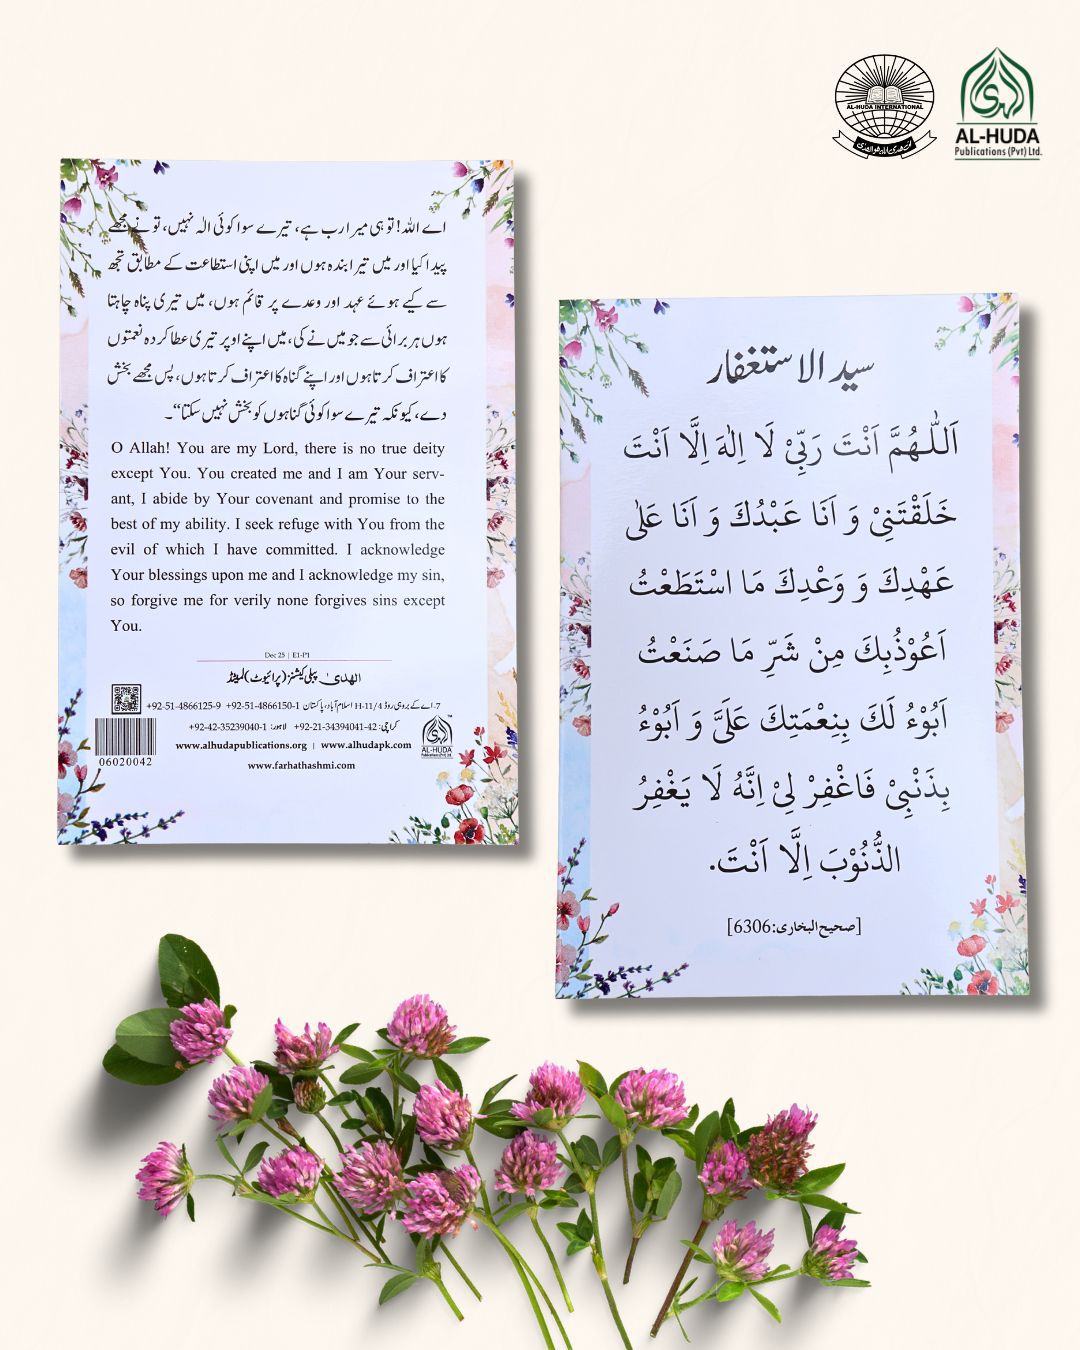 AL-HUDA INTERNATIONAL
AL-HUDA
Publications (Pvt) Ltd.
اے اللہ! تو ہی میرا رب ہے، تیرے سوا کوئی الٰہ نہیں، تو نے مجھے
پیدا کیا اور میں تیرا بندہ ہوں اور میں اپنی استطاعت کے مطابق تجھ
سے کیے ہوئے عہد اور وعدے پر قائم ہوں، میں تیری پناہ چاہتا
ہوں ہر برائی سے جو میں نے کی، میں اپنے اوپر تیری عطا کردہ نعمتوں
کا اعتراف کرتا ہوں اور اپنے گناہ کا اعتراف کرتا ہوں، پس مجھے بخش
دے، کیونکہ تیرے سوا کوئی گناہوں کو بخش نہیں سکتا“۔
O Allah! You are my Lord, there is no true deity
except You. You created me and I am Your serv-
ant, I abide by Your covenant and promise to the
best of my ability. I seek refuge with You from the
evil of which I have committed. I acknowledge
Your blessings upon me and I acknowledge my sin,
so forgive me for verily none forgives sins except
You.
Dec 25 | E1-P1
الھدیٰ پبلی کیشنز (پرائیوٹ) لمیٹڈ
7-اے کے بروہی روڈ H-11/4 اسلام آباد، پاکستان +92-51-4866150-1 +92-51-4866125-9
کراچی: +92-21-34394041-42 لاہور: +92-42-35239040-1
www.alhudapublications.org | www.alhudapk.com
www.farhathashmi.com
06020042
AL-HUDA
Publications (Pvt) Ltd.
سید الاستغفار
اَللّٰهُمَّ اَنْتَ رَبِّيْ لَا اِلٰهَ اِلَّا اَنْتَ
خَلَقْتَنِيْ وَ اَنَا عَبْدُكَ وَ اَنَا عَلٰى
عَهْدِكَ وَ وَعْدِكَ مَا اسْتَطَعْتُ
اَعُوْذُبِكَ مِنْ شَرِّ مَا صَنَعْتُ
اَبُوْءُ لَكَ بِنِعْمَتِكَ عَلَيَّ وَ اَبُوْءُ
بِذَنْبِيْ فَاغْفِرْ لِيْ اِنَّهُ لَا يَغْفِرُ
الذُّنُوْبَ اِلَّا اَنْتَ.
[صحيح البخاری: 6306]